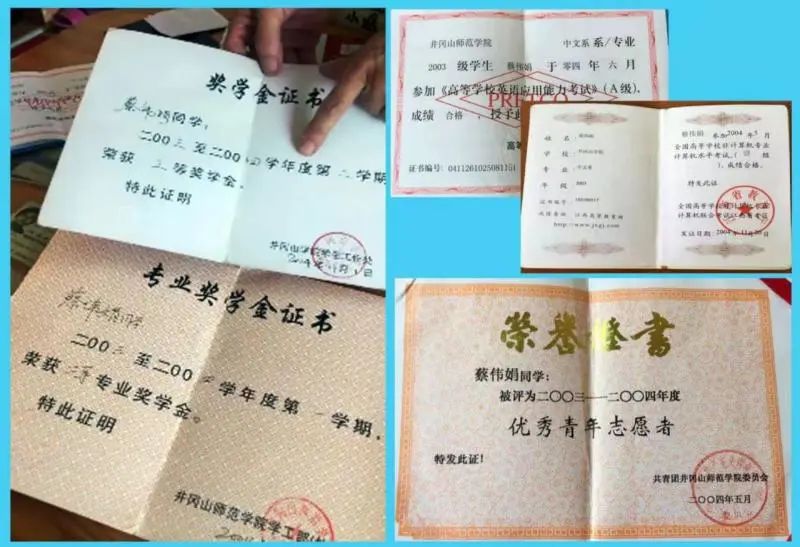 奖学金证书
蔡伟娟同学:
二00三至二00四学年度第二学期
荣获三等奖学金。
特此证明
井冈山学院学生工作处
专业奖学金证书
蔡伟娟同学
二00三至二00四学年度第一学期,
荣获三等专业奖学金。
特此证明
井冈山师范学院学工部
井冈山师范学院 中文系 系/专业
2003 级学生 蔡伟娟 于 零四 年 六 月
参加《高等学校英语应用能力考试》(A级),
PRETCO
成绩 合格,授予此
高等
证书编号:
姓名:
学校:
专业:
年级: 2003
证书编号:
成绩查询:江西高等教育网
http://www.jxgj.com
蔡伟娟 参加2004年5月
全国高等学校非计算机专业
计算机水平考试( 级
),成绩合格。
特发此证
全国高等学校非计算机专业
计算机联合考试江西省考区
发证日期:2004年11月20日
荣誉证书
蔡伟娟同学:
被评为二〇〇三——二〇〇四年度
优秀青年志愿者
特发此证!
共青团井冈山师范学院委员会
二〇〇四年五月